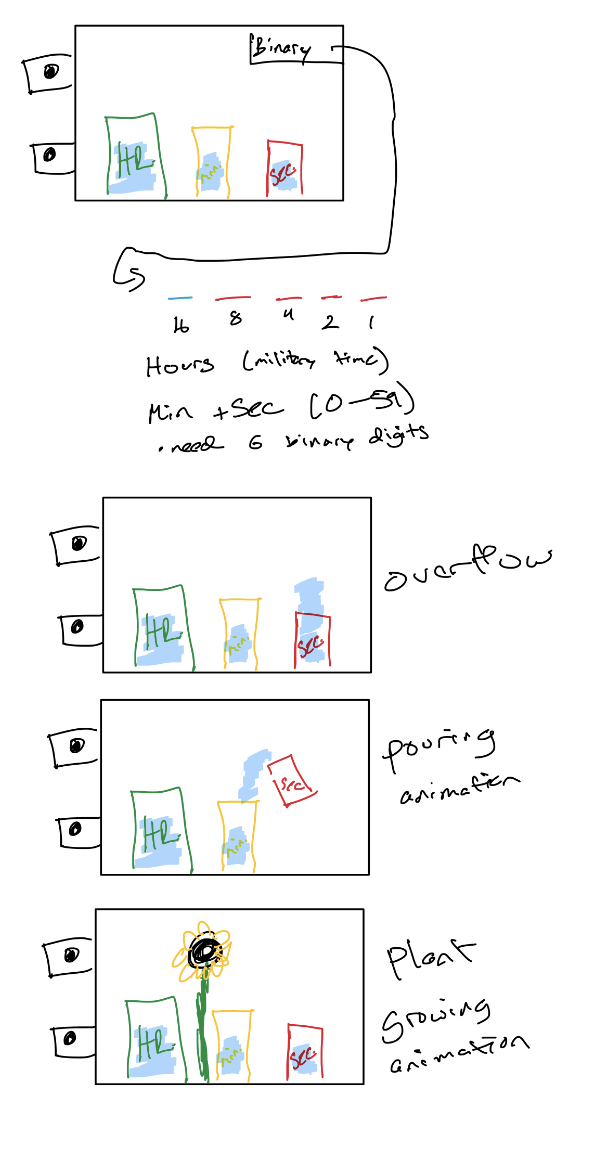 Binary
HR
min.
Sec
16 8 4 2 1
Hours (military time)
Min + Sec (0-59)
• need 6 binary digits
overflow
HR
min.
Sec
pouring
animation
HR
min.
Sec
Plant
growing
animation
HR
min.
Sec